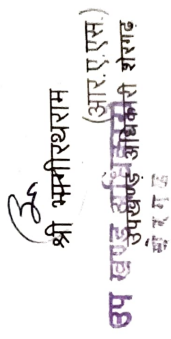 श्री भागीरथराम
(आर.ए.एस.)
उपखण्ड अधिकारी शेरगढ़
उप खण्ड अधिकारी
शेरगढ़